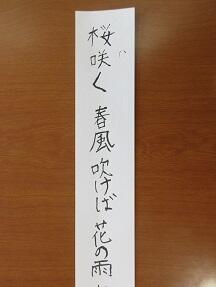 桜咲く 春風吹けば 花の雨